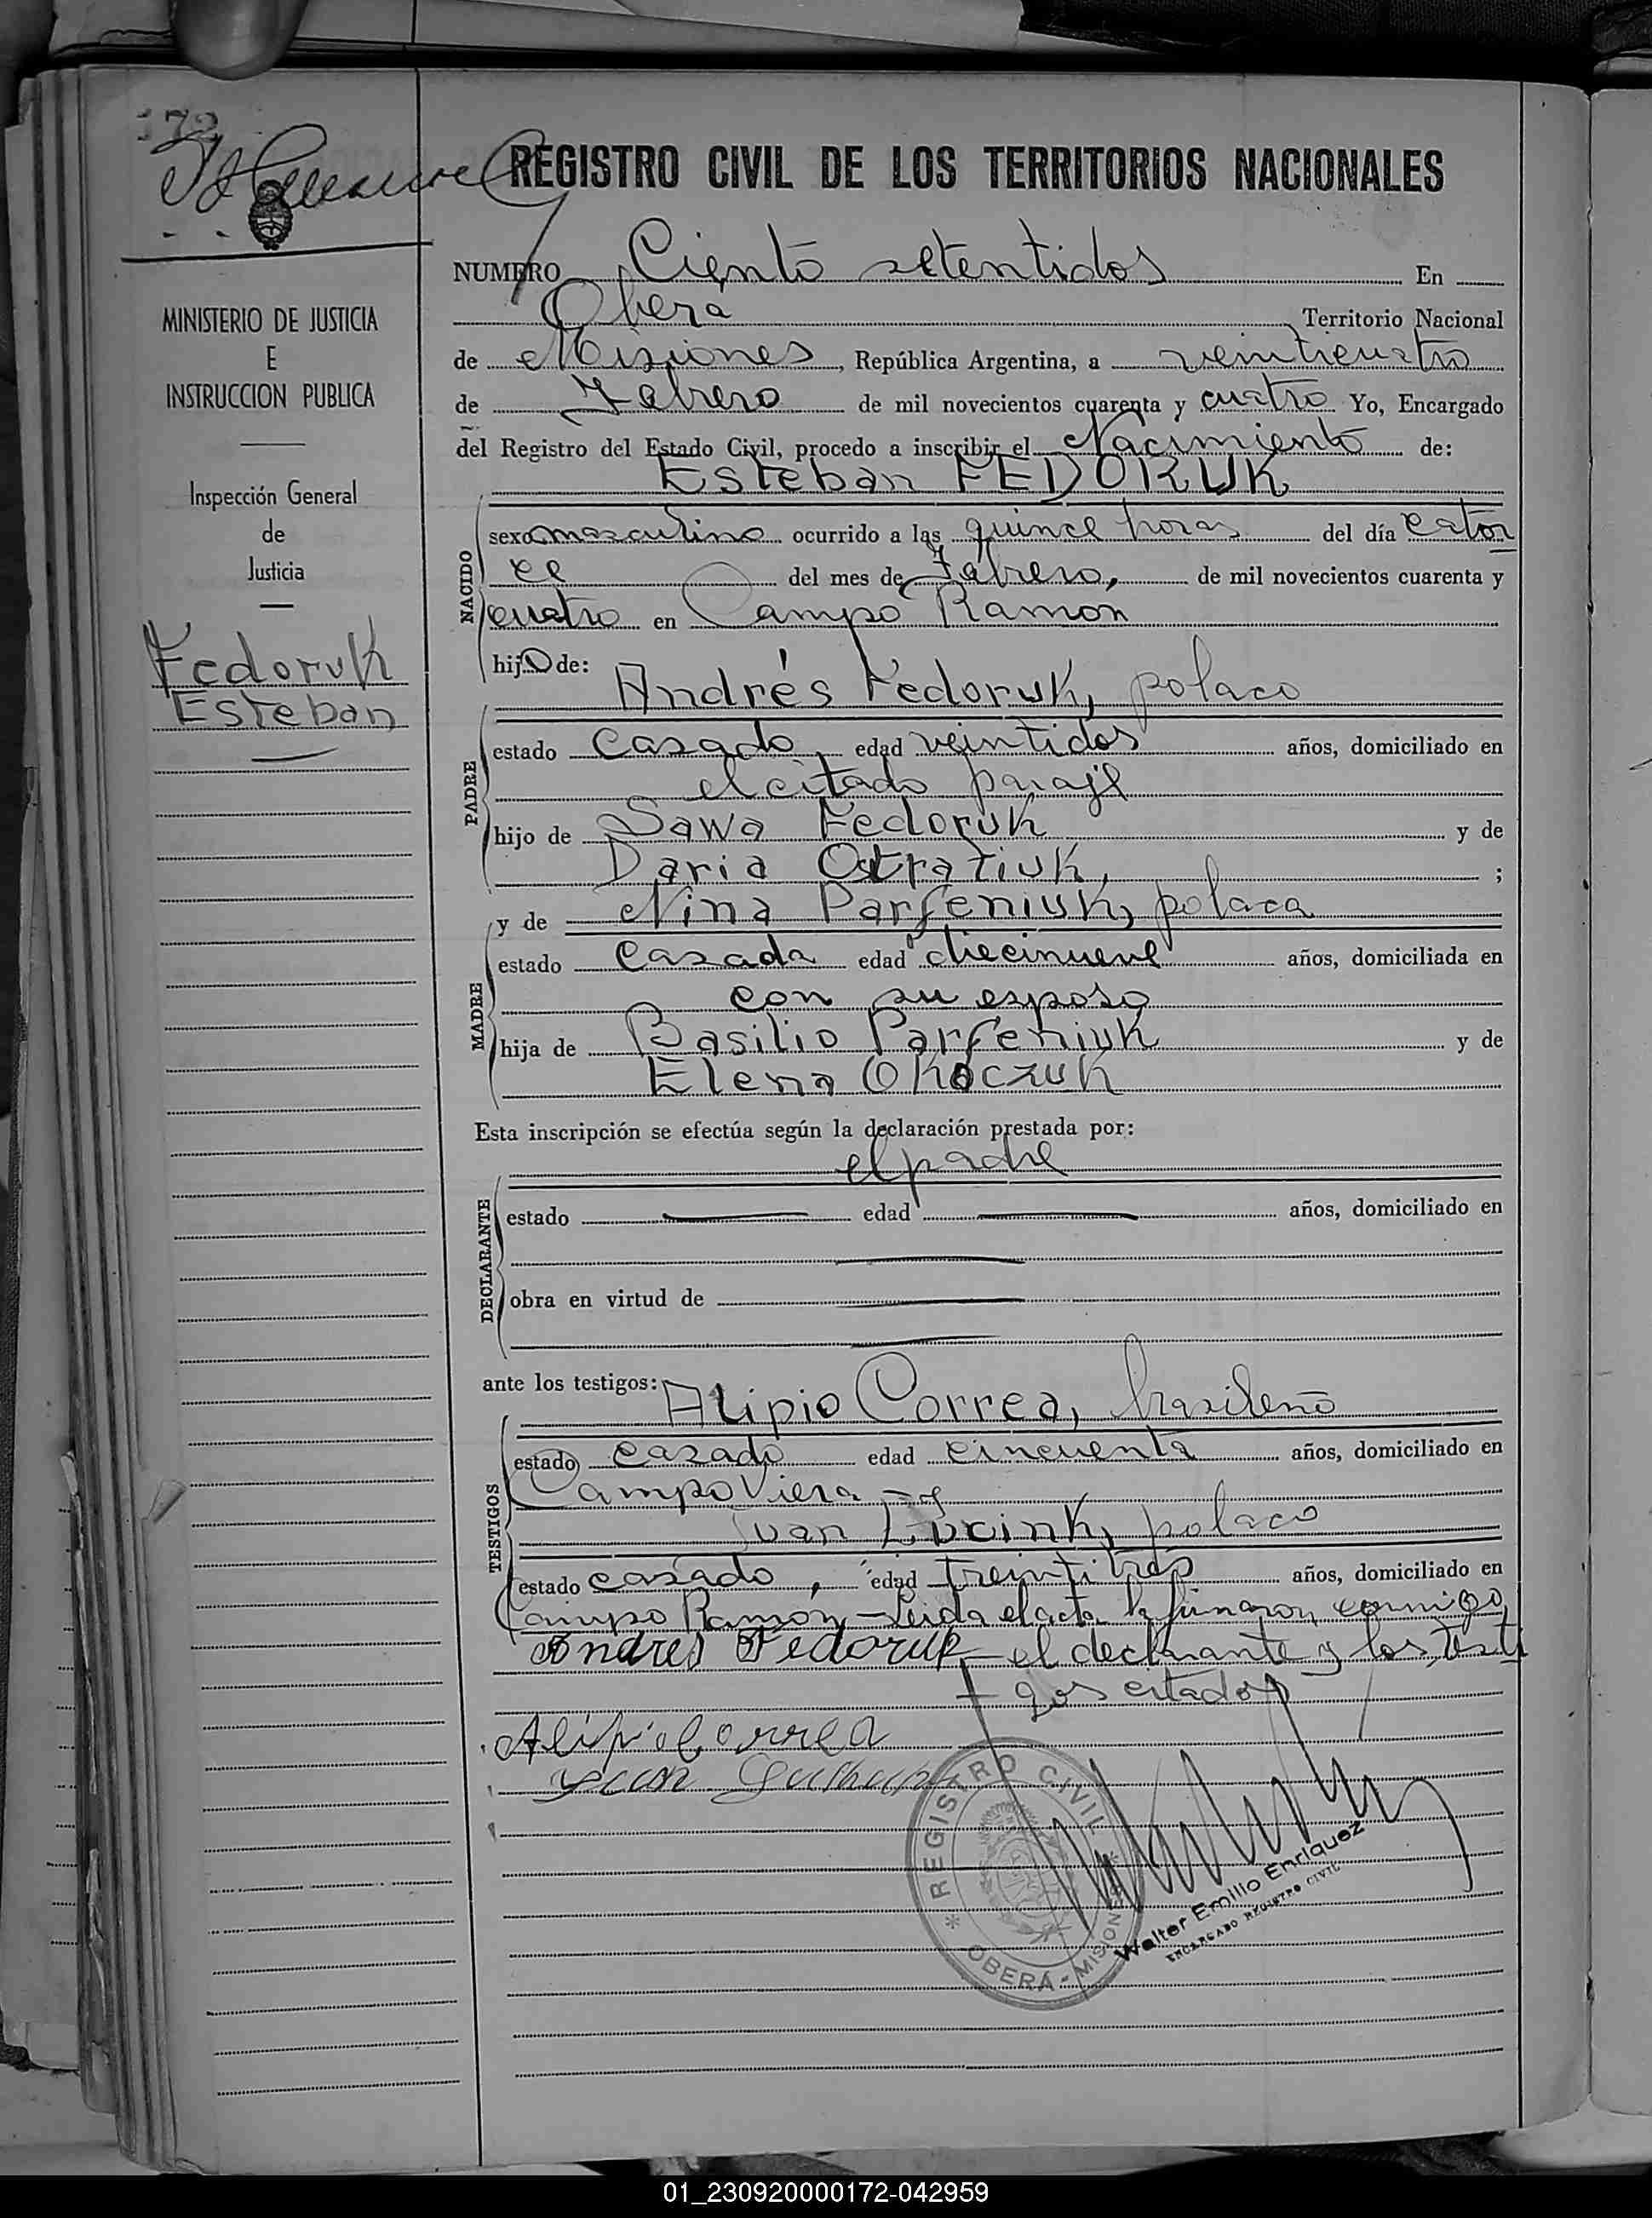 172
REGISTRO CIVIL DE LOS TERRITORIOS NACIONALES
NUMERO Ciento setentidos En
Oberá Territorio Nacional
de Misiones, República Argentina, a veinticuatro
de Febrero de mil novecientos cuarenta y cuatro Yo, Encargado
del Registro del Estado Civil, procedo a inscribir el Nacimiento de:
Esteban FEDORUK
MINISTERIO DE JUSTICIA
E
INSTRUCCION PUBLICA
Inspección General
de
Justicia
Fedoruk
Esteban
NACIDO
sexo masculino ocurrido a las quince horas del día cator
ce del mes de Febrero, de mil novecientos cuarenta y
cuatro en Campo Ramon
hijo de:
Andrés Fedoruk, polaco
PADRE
estado casado, edad veintidos años, domiciliado en
el citado paraje
hijo de Sawa Fedoruk y de
Daria Ostratiuk, ;
y de Nina Parfeniuk, polaca
MADRE
estado casada edad diecinueve años, domiciliada en
con su esposo
hija de Basilio Parfeniuk y de
Elena Okoczuk
Esta inscripción se efectúa según la declaración prestada por:
el padre
DECLARANTE
estado edad años, domiciliado en
obra en virtud de
ante los testigos: Alipio Correa, brasileño
TESTIGOS
estado casado edad cincuenta años, domiciliado en
Campo Viera - y
Juan polaco
estado casado, edad treintitres años, domiciliado en
Campo Ramón - Leida el acta la firmaron conmigo
Andres Fedoruk - el declarante y los testi
gos citados
Alipio Correa
REGISTRO CIVIL
* OBERÁ - MISIONES *
Walter Emilio Enriquez
ENCARGADO REGISTRO CIVIL
01_230920000172-042959